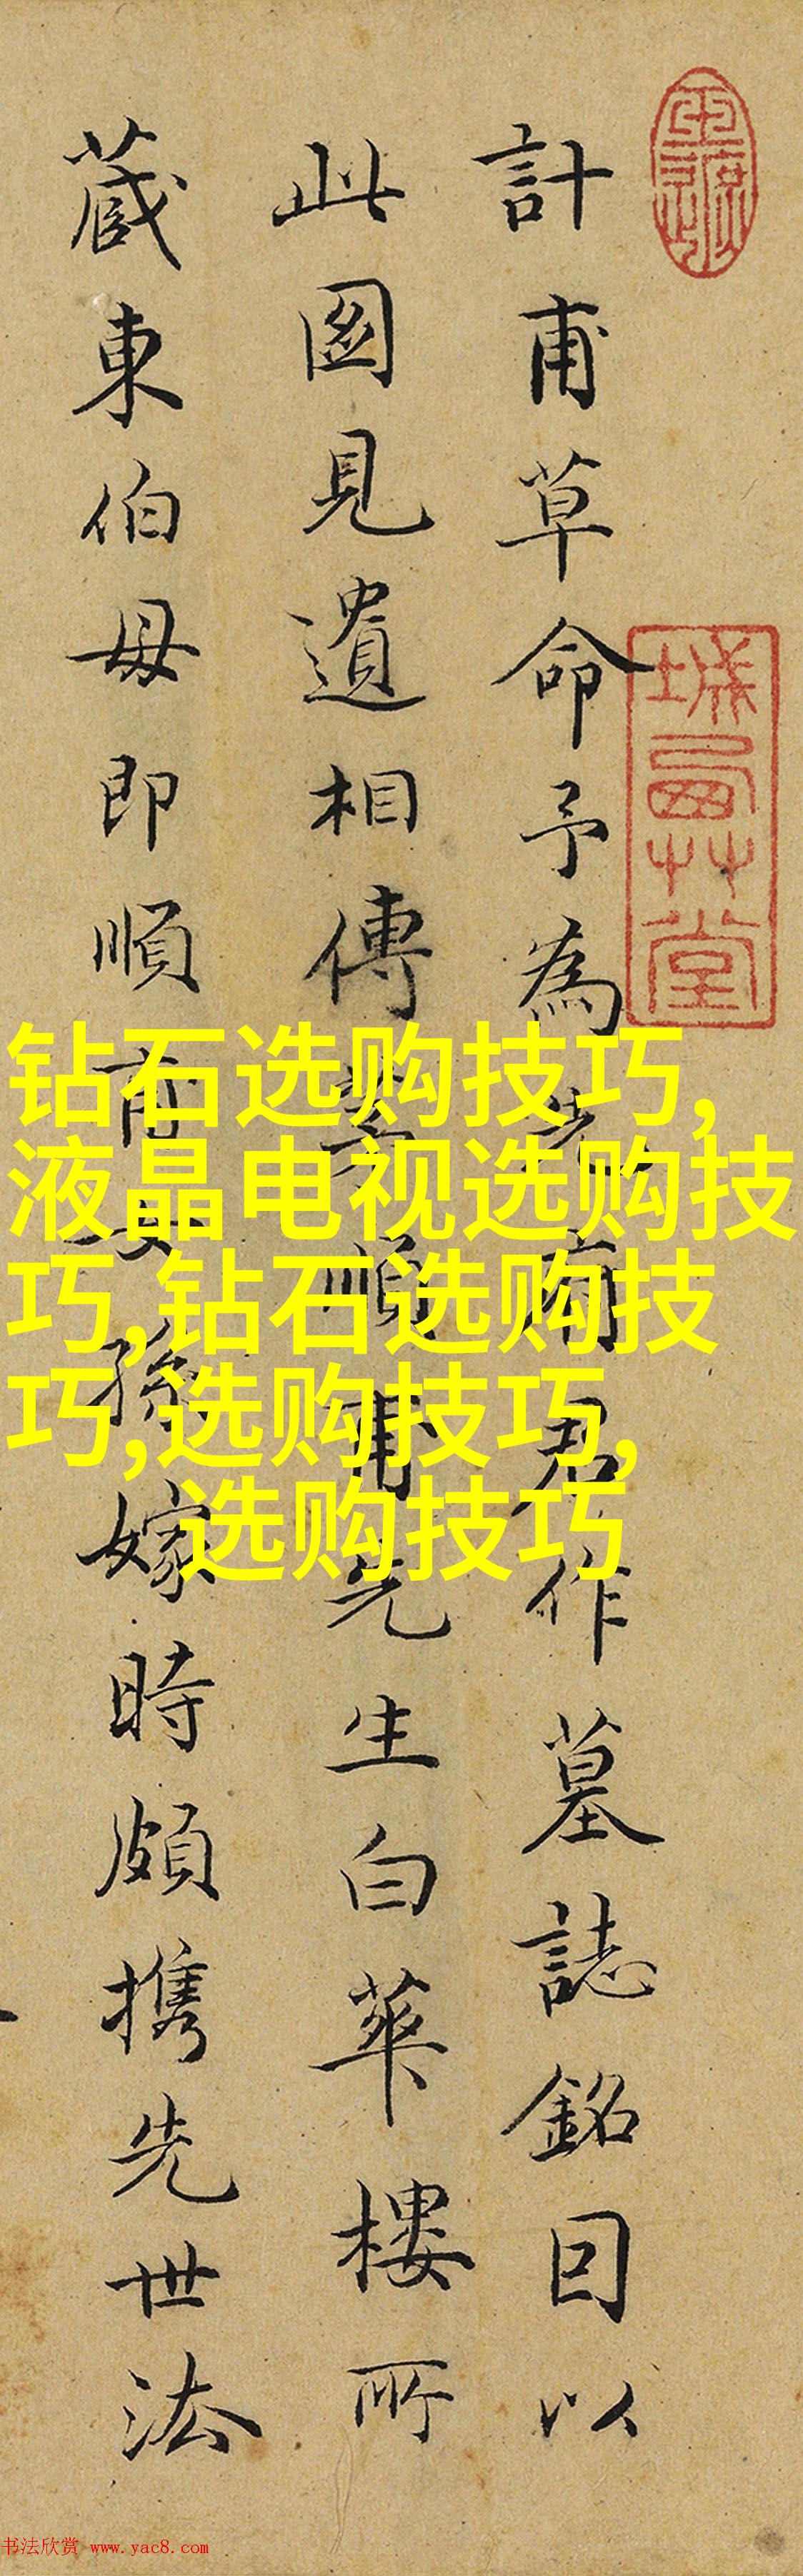 計甫草命予為先府君作墓誌銘因以
此圖見遺相傳華順甫先生白華樓所
蔵東伯母即順甫女孫嫁時頗携先世法
钻石选购技巧,
液晶电视选购技
巧,钻石选购技
巧,选购技巧,
选购技巧
书法欣赏 www.yac8.com